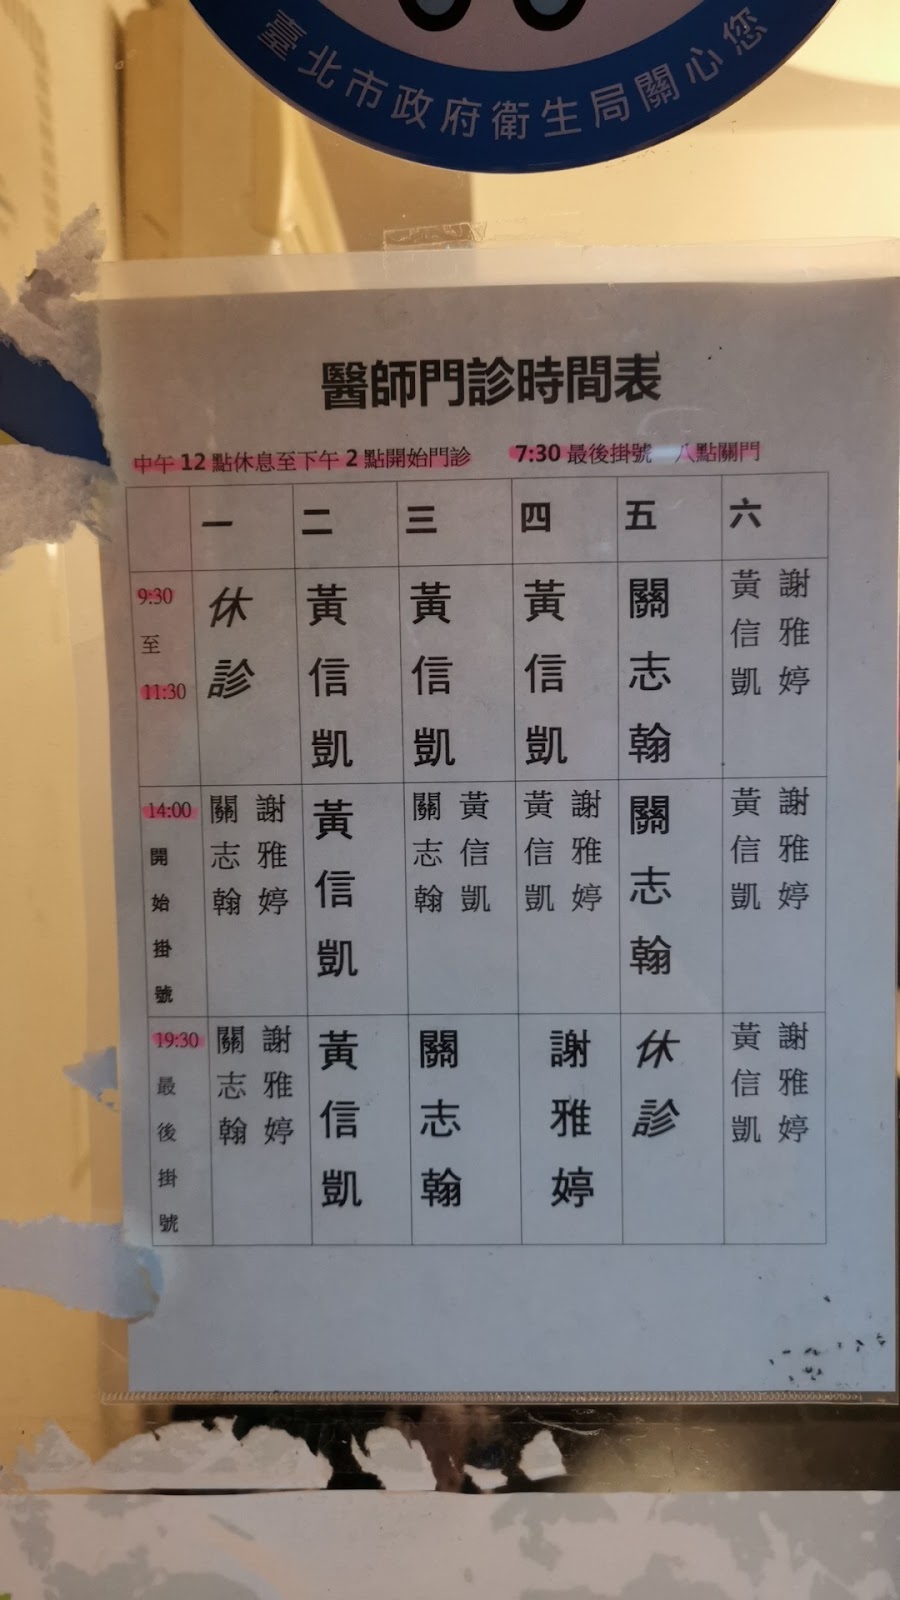 臺北市政府衛生局關心您
醫師門診時間表
中午12點休息至下午2點開始門診 7:30最後掛號 八點關門
一 二 三 四 五 六
9:30至11:30 休診 黃信凱 黃信凱 黃信凱 關志翰 黃信凱 謝雅婷
14:00開始掛號 關志翰 謝雅婷 黃信凱 關志翰 黃信凱 黃信凱 謝雅婷 關志翰 黃信凱 謝雅婷
19:30最後掛號 關志翰 謝雅婷 黃信凱 關志翰 謝雅婷 休診 黃信凱 謝雅婷